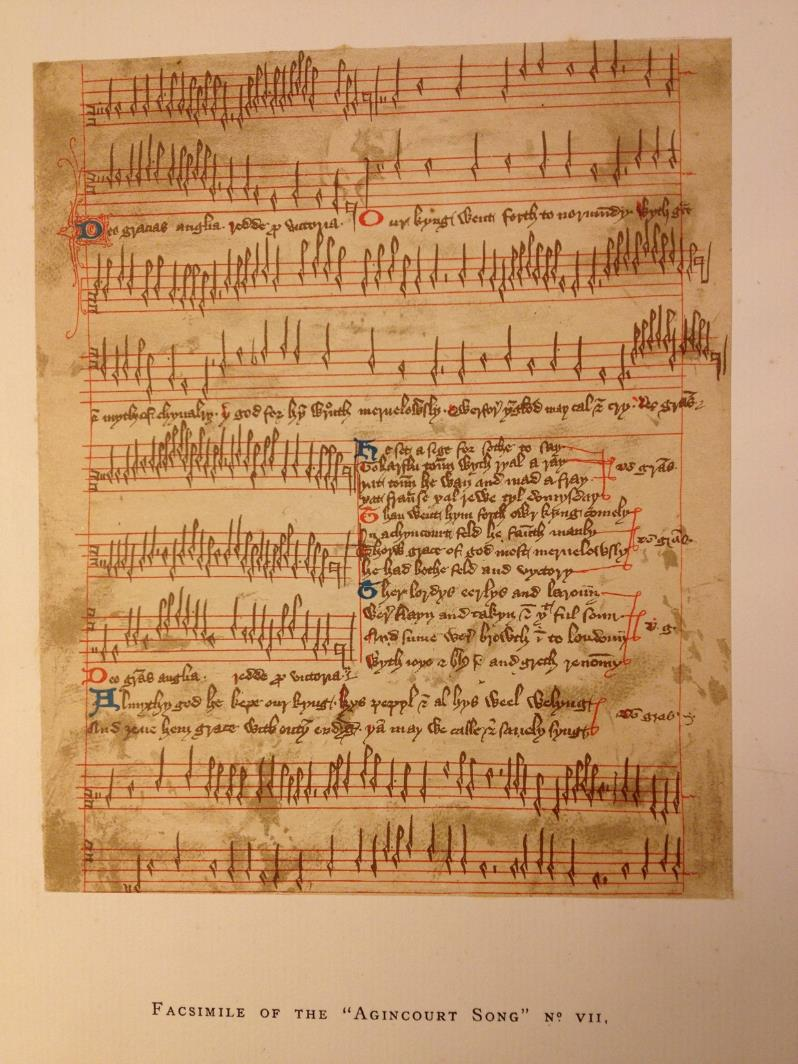 Deo gracias anglia. redde p victoria. Our kyng went forth to normandy. Wyth gce
& myth of chyvalry. y god for hy wrouth mervelowsly. Qwerfor yglod may cal & cry. Deo gras
He set a sege for sothe to say
To harflu toun wyth ryal a ray
yat toun he wan and mad a fray
yat fraunse yal rewe tyl domysday
deo gras
Than went hym forth owr kyng comely
In achyncourt feld he fauth manly
Thorw grace of god most mervelowsly
he had bothe feld and vyctory
deo gras
Ther lordys eerlys and baroun
Wer slayn and takyn & yt ful soun
And sume wer browth i to londoun
Wyth ioye & blys & and greth renoun
d g
Deo gras anglia. redde p victoria
Almythy god he kepe our kyng. hys pepyl & al hys weel welyng
And zeue hem grace with outy endyng. ya may we calle & savely syng
deo gras
FACSIMILE OF THE "AGINCOURT SONG" No VII.